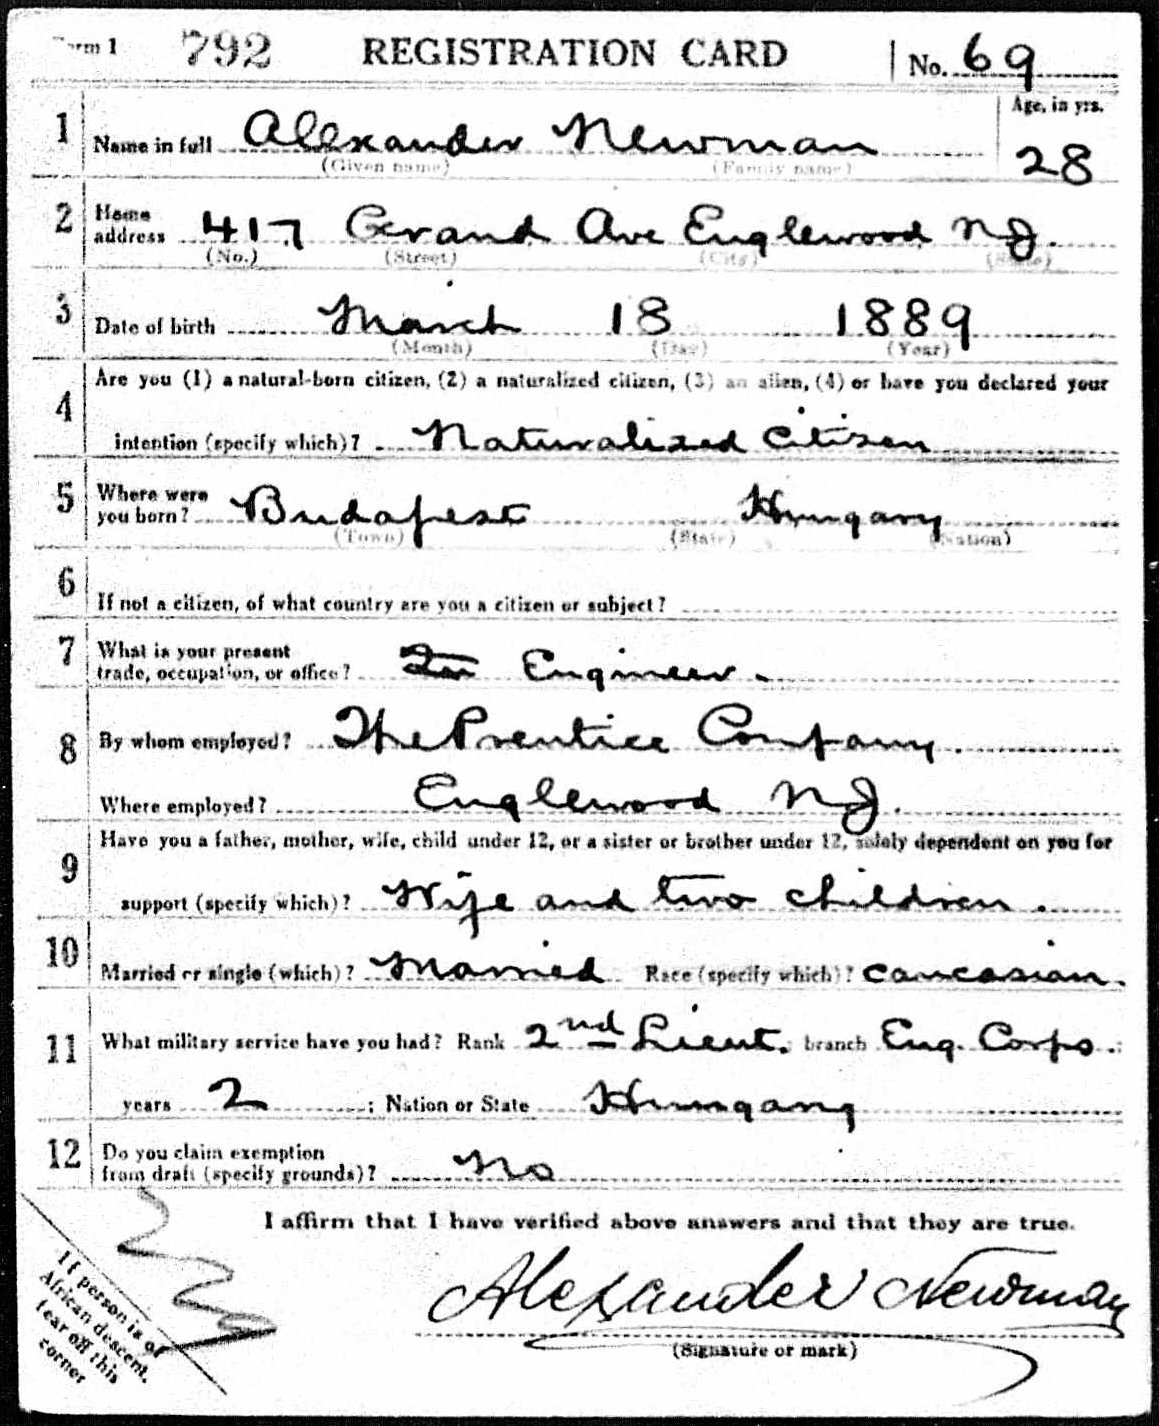 Form 1 792 REGISTRATION CARD No. 69
1 Name in full Alexander Newman Age, in yrs.
(Given name) (Family name) 28
2 Home address 417 Grand Ave Englewood NJ.
(No.) (Street) (City) (State)
3 Date of birth March 18 1889
(Month) (Day) (Year)
4 Are you (1) a natural-born citizen, (2) a naturalized citizen, (3) an alien, (4) or have you declared your
intention (specify which)? Naturalized citizen
5 Where were you born? Budapest Hungary
(Town) (State) (Nation)
6 If not a citizen, of what country are you a citizen or subject?
7 What is your present
trade, occupation, or office? Engineer.
8 By whom employed? The Prentice Company.
Where employed? Englewood NJ.
9 Have you a father, mother, wife, child under 12, or a sister or brother under 12, solely dependent on you for
support (specify which)? Wife and two children.
10 Married or single (which)? Married Race (specify which)? caucasian.
11 What military service have you had? Rank 2nd Lieut. branch Eng. Corps.
years 2 ; Nation or State Hungary
12 Do you claim exemption
from draft (specify grounds)? No
I affirm that I have verified above answers and that they are true.
Alexander Newman
(Signature or mark)
If person is of
African descent,
tear off this
corner